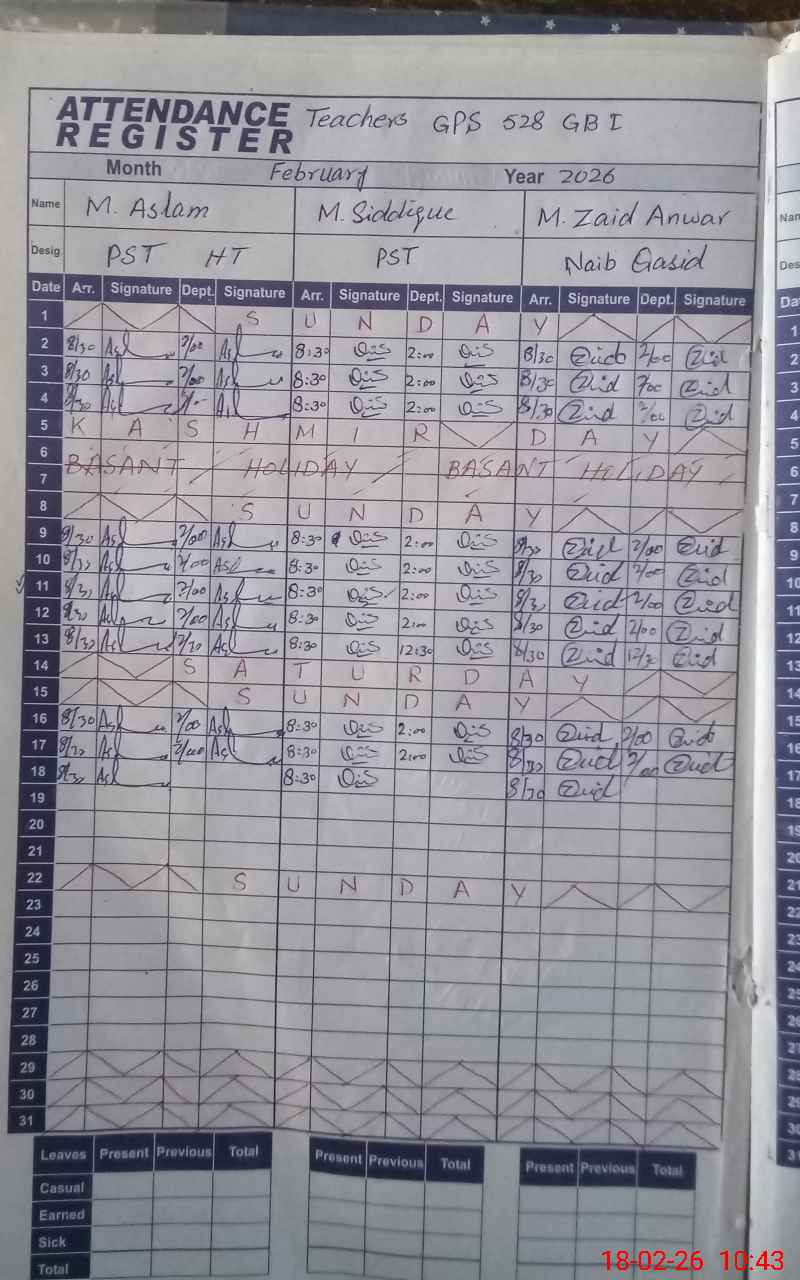 ATTENDANCE REGISTER Teachers GPS 528 GB I
Month February Year 2026
Name M. Aslam M. Siddique M. Zaid Anwar
Desig. PST HT PST Naib Qasid
Date Arr. Signature Dept. Signature Arr. Signature Dept. Signature Arr. Signature Dept. Signature
1 S U N D A Y
2 8/30 Asl 2/00 Asl 8:30 2:00 8/30 Zaid 2/00 Zaid
3 8/30 Asl 2/00 Asl 8:30 2:00 8/30 Zaid 2/00 Zaid
4 8/30 Asl Asl 8:30 2:00 8/30 Zaid 2/00 Zaid
5 K A S H M I R D A Y
6
7 BASANT HOLIDAY BASANT HOLIDAY
8 S U N D A Y
9 8/30 Asl 2/00 Asl 8:30 2:00 8/30 Zaid 2/00 Zaid
10 8/30 Asl 2/00 Asl 8:30 2:00 8/30 Zaid 2/00 Zaid
11 8/30 Asl 2/00 Asl 8:30 2:00 8/30 Zaid 2/00 Zaid
12 8/30 Asl 2/00 Asl 8:30 2:00 8/30 Zaid 2/00 Zaid
13 8/30 Asl Asl 8:30 12:30 8/30 Zaid 12/30 Zaid
14 S A T U R D A Y
15 S U N D A Y
16 8/30 Asl 2/00 Asl 8:30 2:00 8/30 Zaid 2/00 Zaid
17 8/30 Asl 2/00 Asl 8:30 2:00 8/30 Zaid 2/00 Zaid
18 8/30 Asl 8:30 8/30 Zaid
19
20
21
22 S U N D A Y
23
24
25
26
27
28
29
30
31
Leaves Present Previous Total Present Previous Total Present Previous Total
Casual
Earned
Sick
Total
18-02-26 10:43